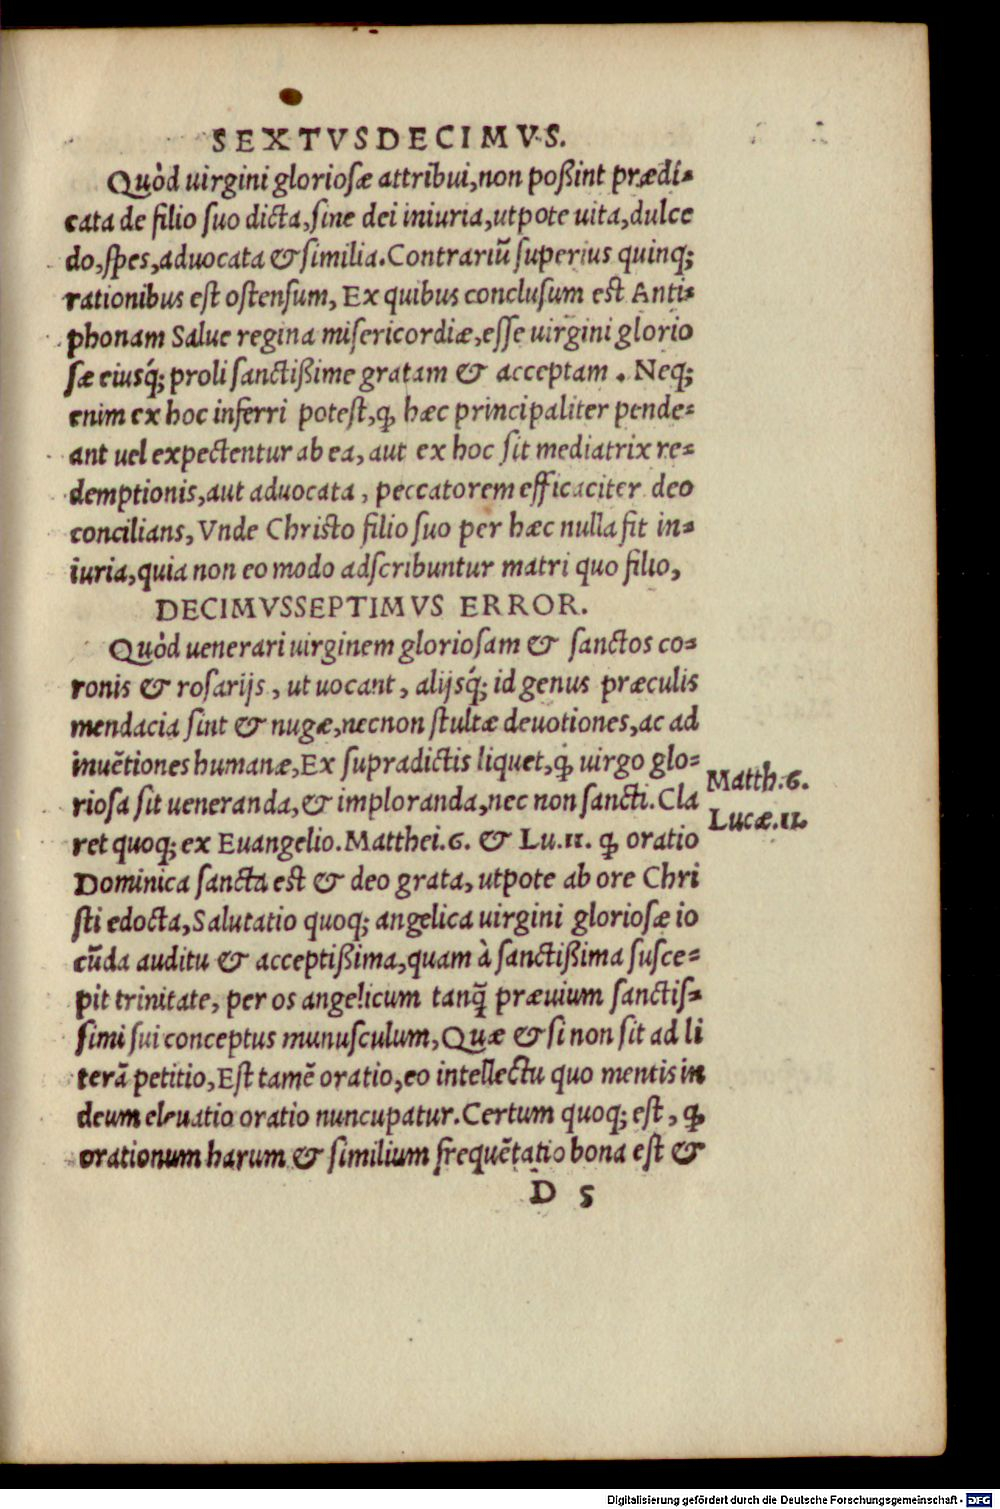 SEXTVSDECIMVS.
Quòd uirgini gloriosæ attribui, non poßint prædi-
cata de filio suo dicta, sine dei iniuria, utpote uita, dulce
do, spes, aduocata & similia. Contrariũ superius quinq;
rationibus est ostensum, Ex quibus conclusum est Anti-
phonam Salue regina misericordiæ, esse uirgini glorio
sæ eiusq́; proli sanctißime gratam & acceptam. Neq;
enim ex hoc inferri potest, ꝙ hæc principaliter pende-
ant uel expectentur ab ea, aut ex hoc sit mediatrix re-
demptionis, aut aduocata, peccatorem efficaciter deo
concilians, Vnde Christo filio suo per hæc nulla fit in-
iuria, quia non eo modo adscribuntur matri quo filio,
DECIMVSSEPTIMVS ERROR.
Quòd uenerari uirginem gloriosam & sanctos co-
ronis & rosarijs, ut uocant, alijsq́; id genus præculis
mendacia sint & nugæ, necnon stultæ deuotiones, ac ad
inuẽtiones humanæ, Ex supradictis liquet, ꝙ uirgo glo-
riosa sit ueneranda, & imploranda, nec non sancti. Cla
ret quoq; ex Euangelio. Matthei. 6. & Lu. 11. ꝙ oratio
Dominica sancta est & deo grata, utpote ab ore Chri
sti edocta, Salutatio quoq; angelica uirgini gloriosæ io
cũda auditu & acceptißima, quam à sanctißima susce-
pit trinitate, per os angelicum tanq̃ præuium sanctis-
simi sui conceptus munusculum, Quæ & si non sit ad li
terã petitio, Est tamẽ oratio, eo intellectu quo mentis in
deum eleuatio oratio nuncupatur. Certum quoq; est, ꝙ
orationum harum & similium frequẽtatio bona est &
D 5
Matth. 6.
Lucæ. 11.
Digitalisierung gefördert durch die Deutsche Forschungsgemeinschaft - DFG